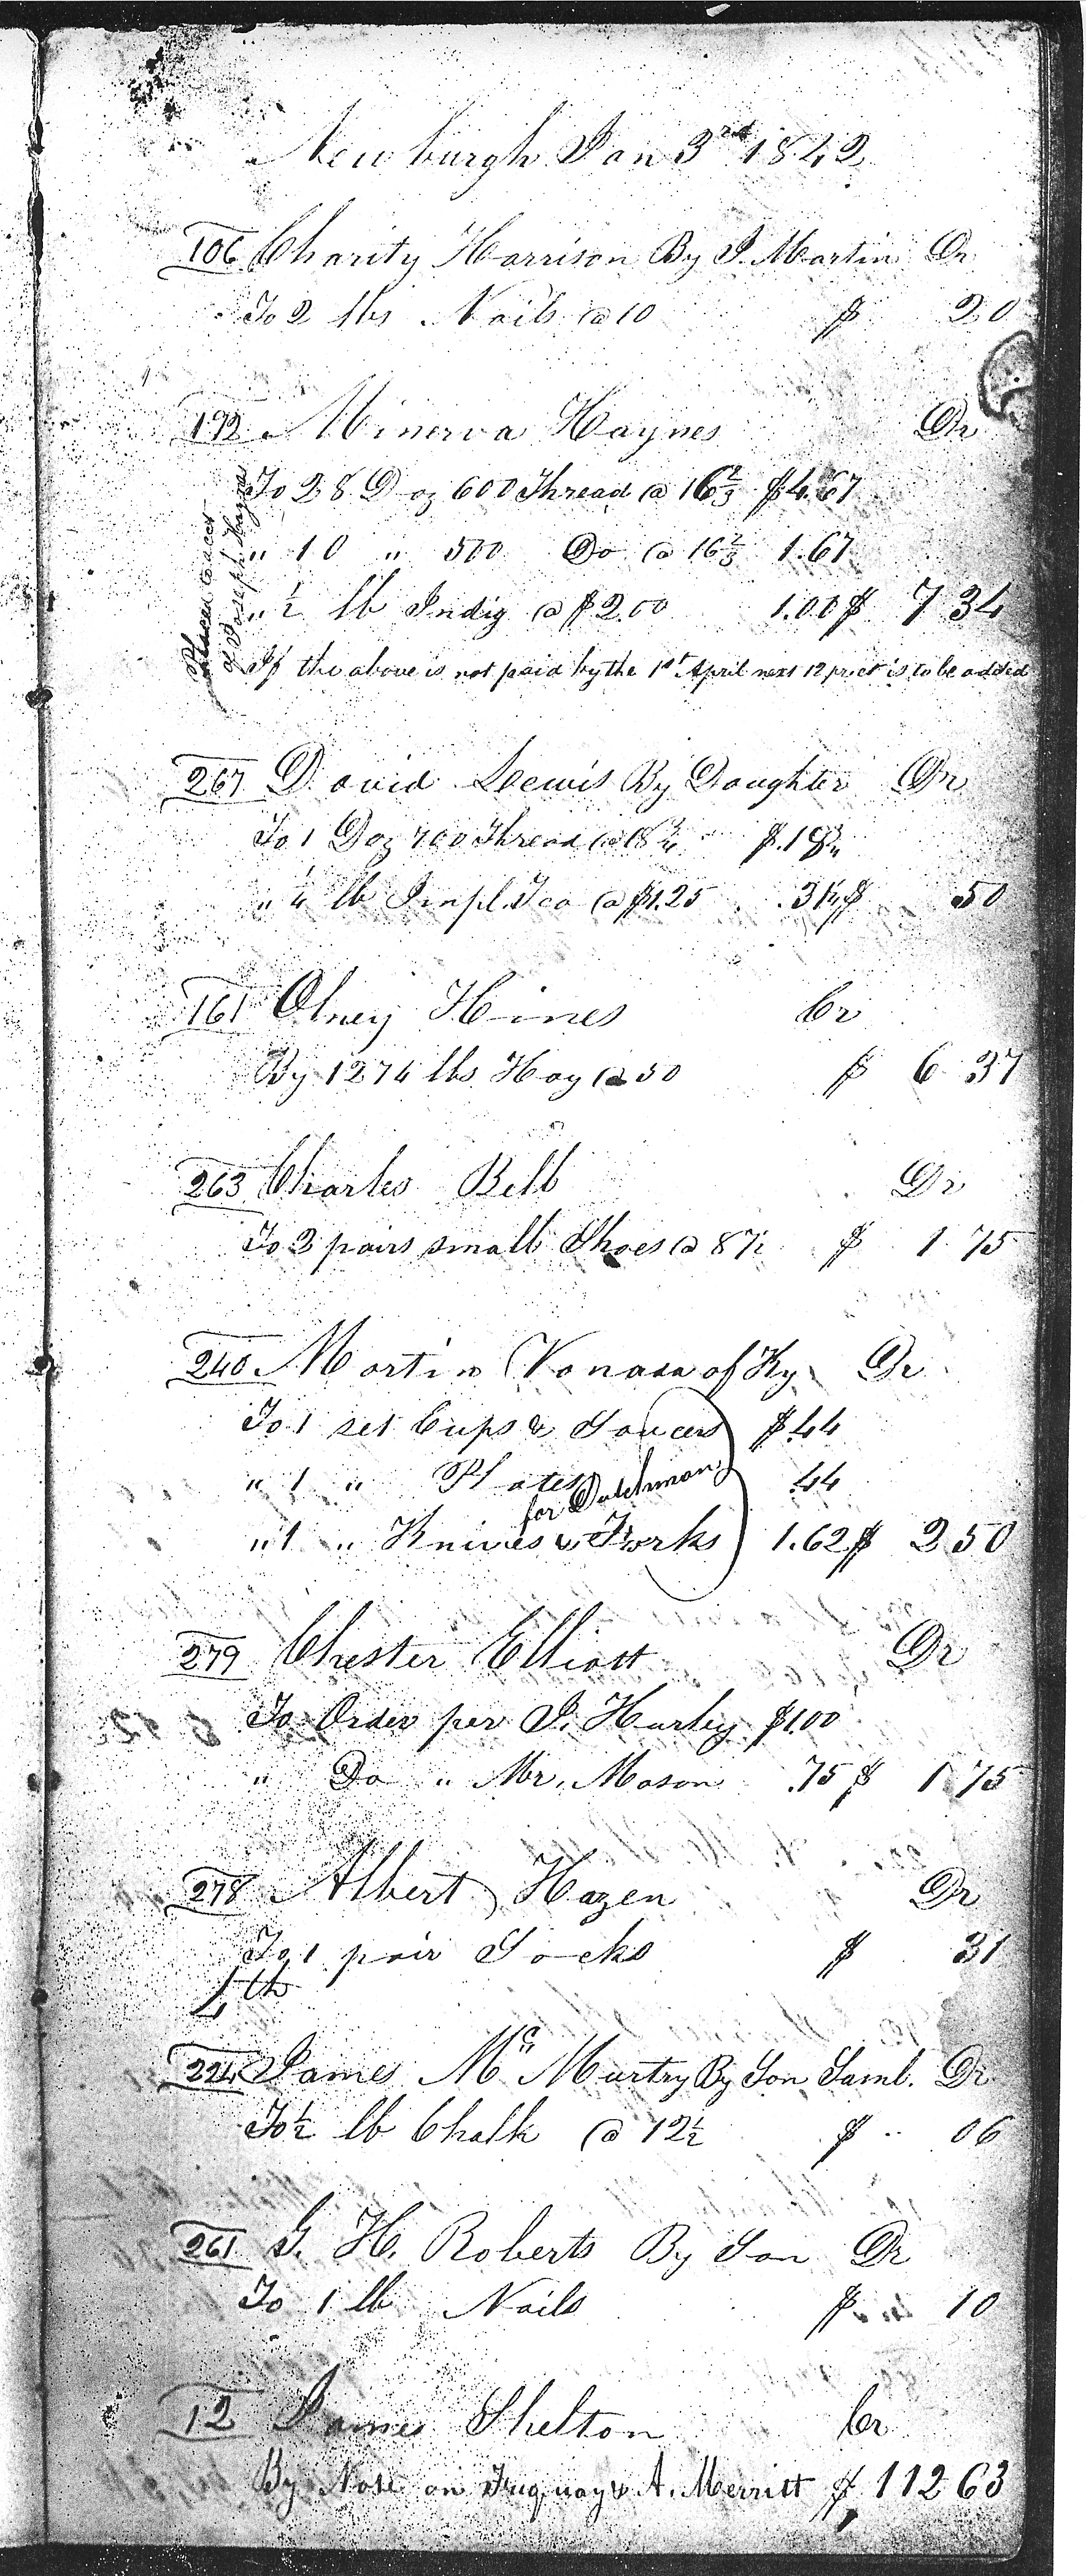 Newburgh Jan 3rd 1842
106 Charity Harrison By J. Martin Dr
To 2 lbs Nails @ 10 $ 20
192 Minerva Haynes Dr
To 28 Doz 600 Thread @ 16 2/3 $4.67
" 10 " 500 Do @ 16 2/3 1.67
" 1/2 lb Indig @ $2.00 1.00 $ 7 34
If the above is not paid by the 1st April next 12 pr ct is to be added
267 David Lewis By Daughter Dr
To 1 Doz 700 Thread @ 18 3/4 $.18 3/4
" 1/4 lb Impl. Tea @ $1.25 .31 1/4 $ 50
161 Olney Hines Cr
By 1274 lbs Hay @ 50 $ 6 37
263 Charles Bell Dr
To 2 pairs small Shoes @ 87 1/2 $ 1 75
240 Martin Vonada of Ky Dr
To 1 set Cups & Saucers $.44
" 1 " Plates .44
for Dutchman
" 1 " Knives & Forks 1.62 $ 2 50
279 Chester Elliott Dr
To Order per J. Hurley $1.00
" Do " Mr. Mason .75 $ 1 75
278 Albert Hazen Dr
To 1 pair Socks $ 31
4th
224 James McMurtry By Son Saml. Dr
To 1/2 lb Chalk @ 12 1/2 $ 06
261 G. H. Roberts By Son Dr
To 1 lb Nails $ 10
12 James Shelton Cr
By Note on Fuquay & A. Merritt $ 112 63